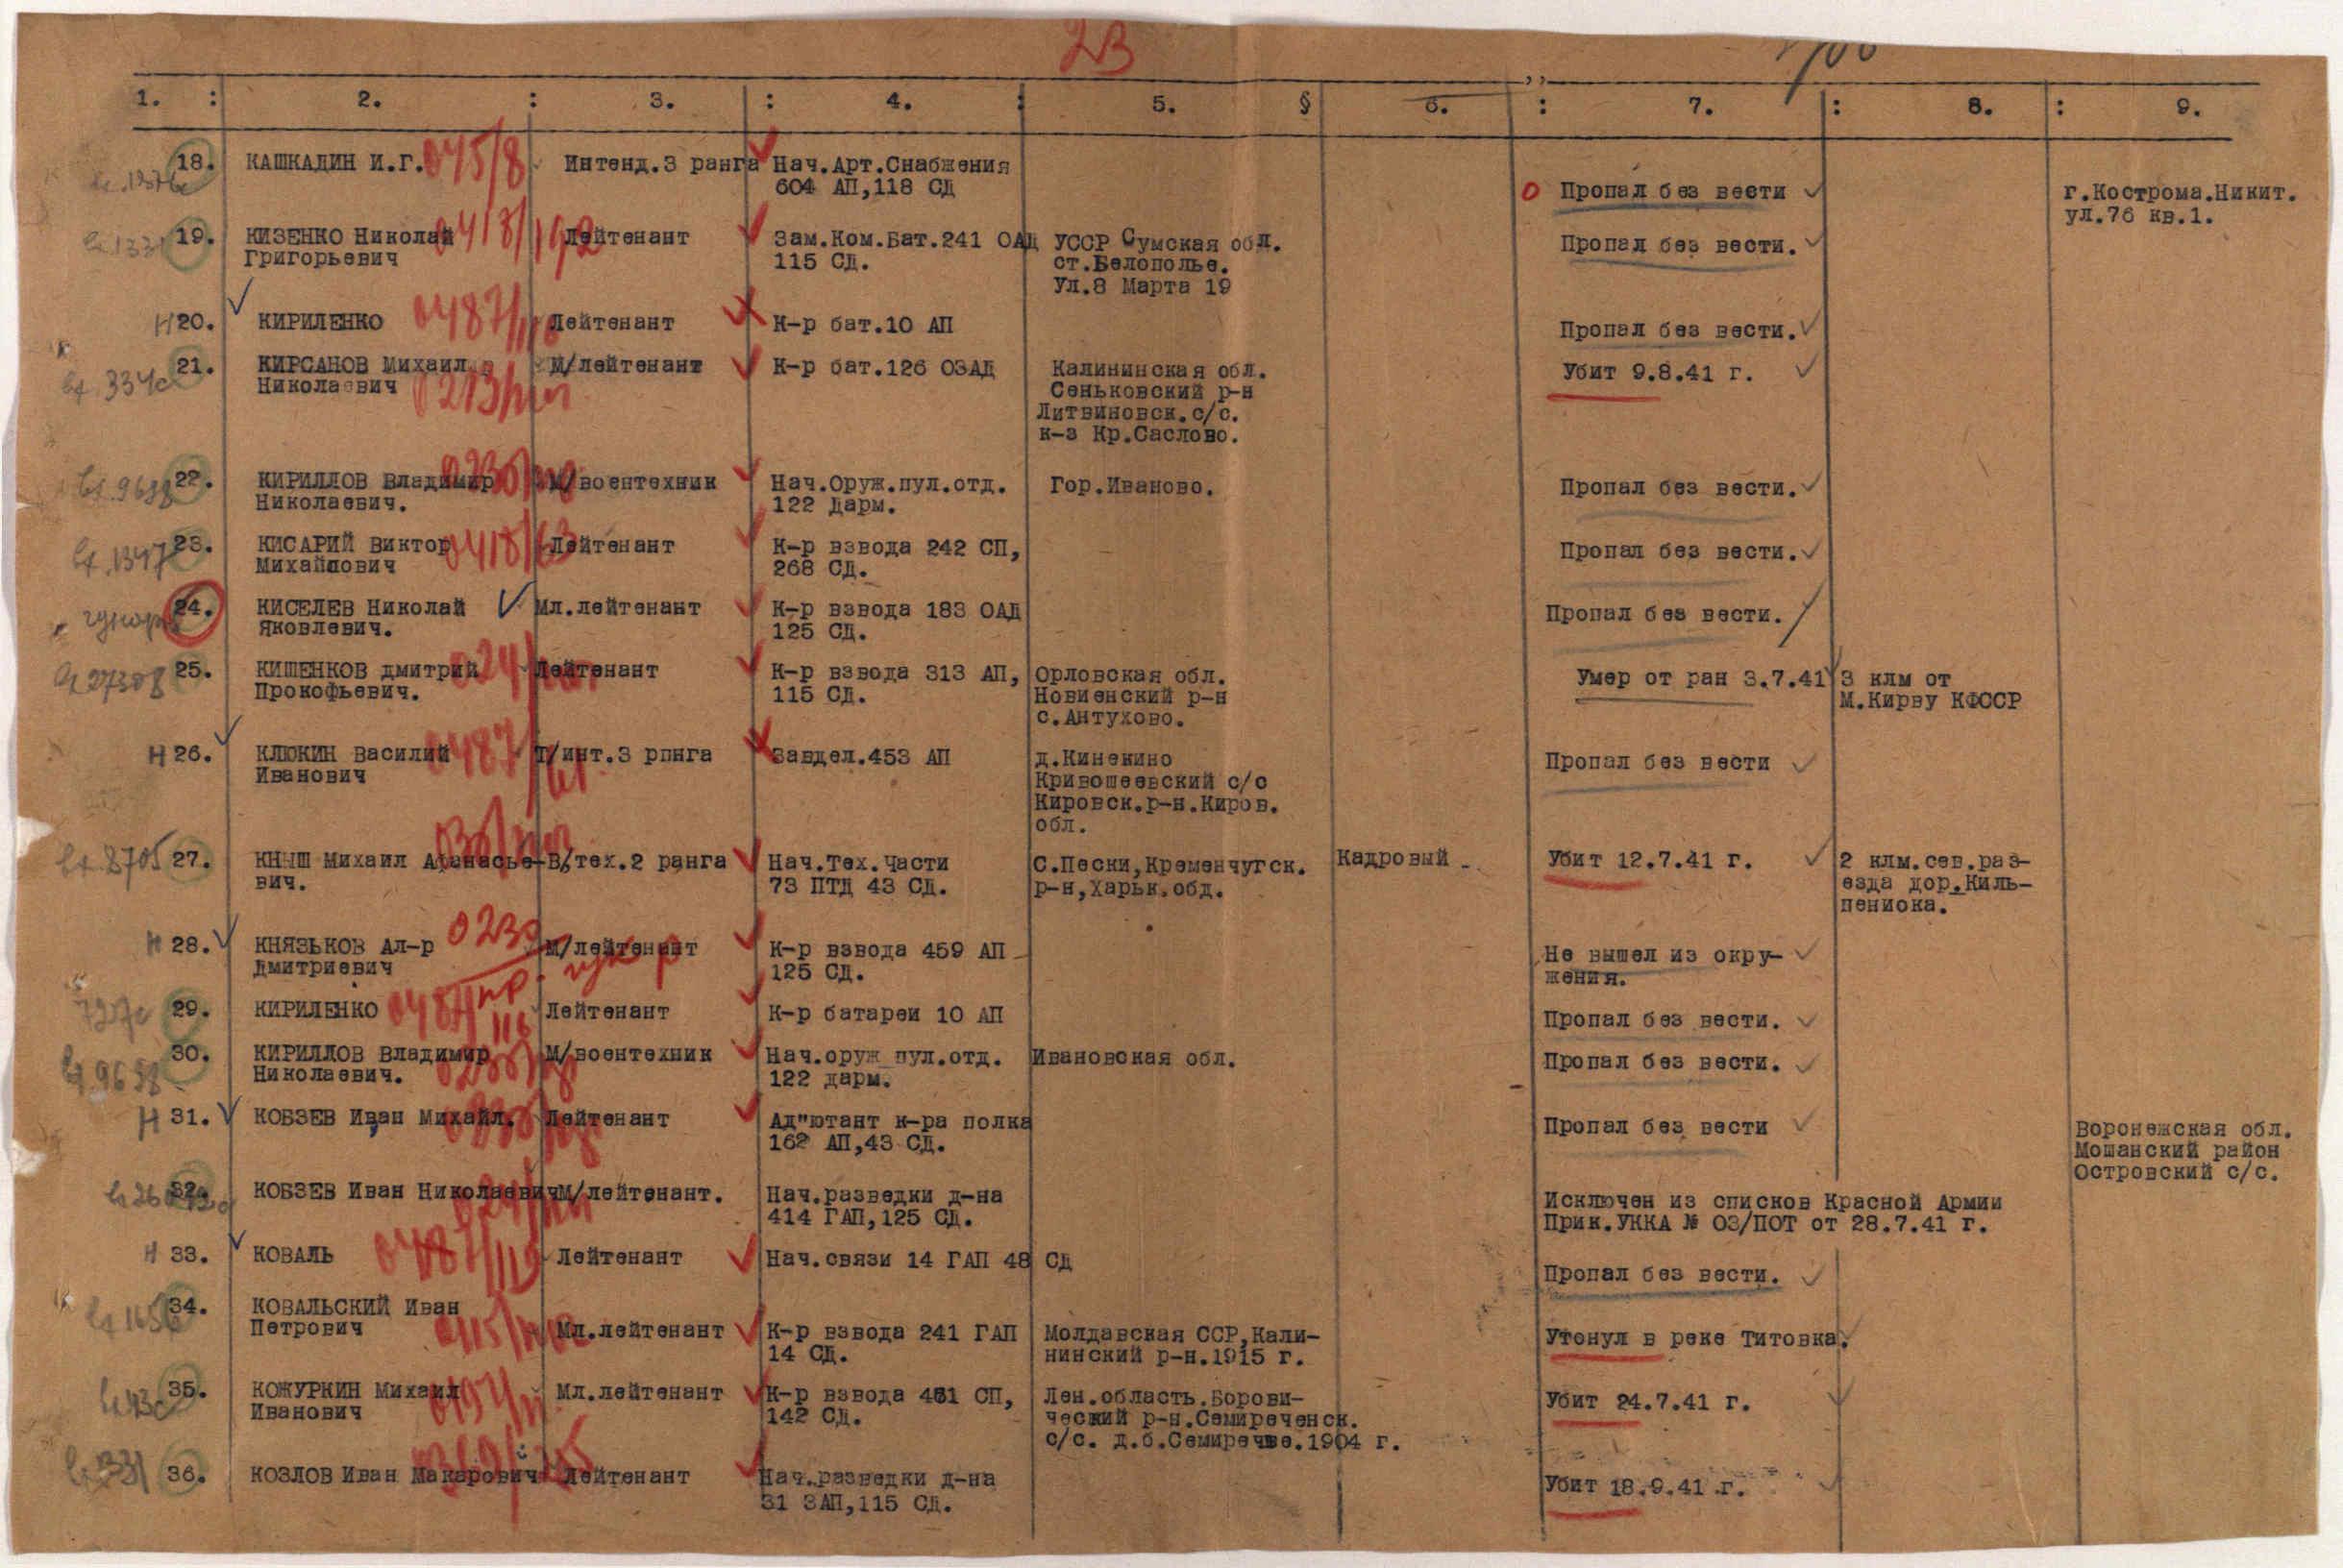 23
1. : 2. : 3. : 4. : 5. § 6. : 7. : 8. : 9.
18. КАШКАДИН И.Г. 045/8 Интенд.3 ранга Нач.Арт.Снабжения
604 АП,118 СД Пропал без вести г.Кострома.Никит.
ул.76 кв.1.
19. КИЗЕНКО Николай Лейтенант Зам.Ком.Бат.241 ОАД УССР Сумская обл. Пропал без вести.
Григорьевич 115 СД. ст.Белополье.
Ул.8 Марта 19
Н 20. КИРИЛЕНКО Лейтенант К-р бат.10 АП Пропал без вести.
21. КИРСАНОВ Михаил М/лейтенант К-р бат.126 ОЗАД Калининская обл. Убит 9.8.41 г.
Николаевич Сеньковский р-н
Литвиновск.с/с.
к-з Кр.Саслово.
22. КИРИЛЛОВ Владимир М/воентехник Нач.Оруж.пул.отд. Гор.Иваново. Пропал без вести.
Николаевич. 122 Дарм.
23. КИСАРИЙ Виктор Лейтенант К-р взвода 242 СП, Пропал без вести.
Михайлович 268 СД.
24. КИСЕЛЕВ Николай Мл.лейтенант К-р взвода 183 ОАД Пропал без вести.
Яковлевич. 125 СД.
25. КИШЕНКОВ Дмитрий Лейтенант К-р взвода 313 АП, Орловская обл. Умер от ран 3.7.41 3 клм от
Прокофьевич. 115 СД. Новиенский р-н М.Кирву КФССР
с.Антухово.
Н 26. КЛЮКИН Василий Т/инт.3 рпнга Завдел.453 АП д.Кинекино Пропал без вести
Иванович Кривошеевский с/с
Кировск.р-н.Киров.
обл.
27. КНЫШ Михаил Афанасье- В/тех.2 ранга Нач.Тех.Части С.Пески,Кременчугск. Кадровый Убит 12.7.41 г. 2 клм.сев.раз-
вич. 73 ПТД 43 СД. р-н,Харьк.обд. езда дор.Киль-
пениока.
Н 28. КНЯЗЬКОВ Ал-р М/лейтенант К-р взвода 459 АП Не вышел из окру-
Дмитриевич 125 СД. жения.
29. КИРИЛЕНКО Лейтенант К-р батареи 10 АП Пропал без вести.
30. КИРИЛЛОВ Владимир М/воентехник Нач.оруж пул.отд. Ивановская обл. Пропал без вести.
Николаевич. 122 дарм.
Н 31. КОБЗЕВ Иван Михайл. Лейтенант Ад"ютант к-ра полка Пропал без вести Воронежская обл.
162 АП,43 СД. Мошанский район
Островский с/с.
32. КОБЗЕВ Иван Николаевич М/лейтенант. Нач.разведки д-на Исключен из списков Красной Армии
414 ГАП,125 СД. Прик.УККА № 03/ПОТ от 28.7.41 г.
Н 33. КОВАЛЬ Лейтенант Нач.связи 14 ГАП 48 СД Пропал без вести.
34. КОВАЛЬСКИЙ Иван
Петрович Мл.лейтенант К-р взвода 241 ГАП Молдавская ССР,Кали- Утонул в реке Титовка.
14 СД. нинский р-н.1915 г.
35. КОЖУРКИН Михаил Мл.лейтенант К-р взвода 461 СП, Лен.область.Борови- Убит 24.7.41 г.
Иванович 142 СД. ческий р-н.Семиреченск.
с/с. д.б.Семиречве.1904 г.
36. КОЗЛОВ Иван Макарович Лейтенант Нач.разведки д-на Убит 18.9.41 г.
31 ЗАП,115 СД.